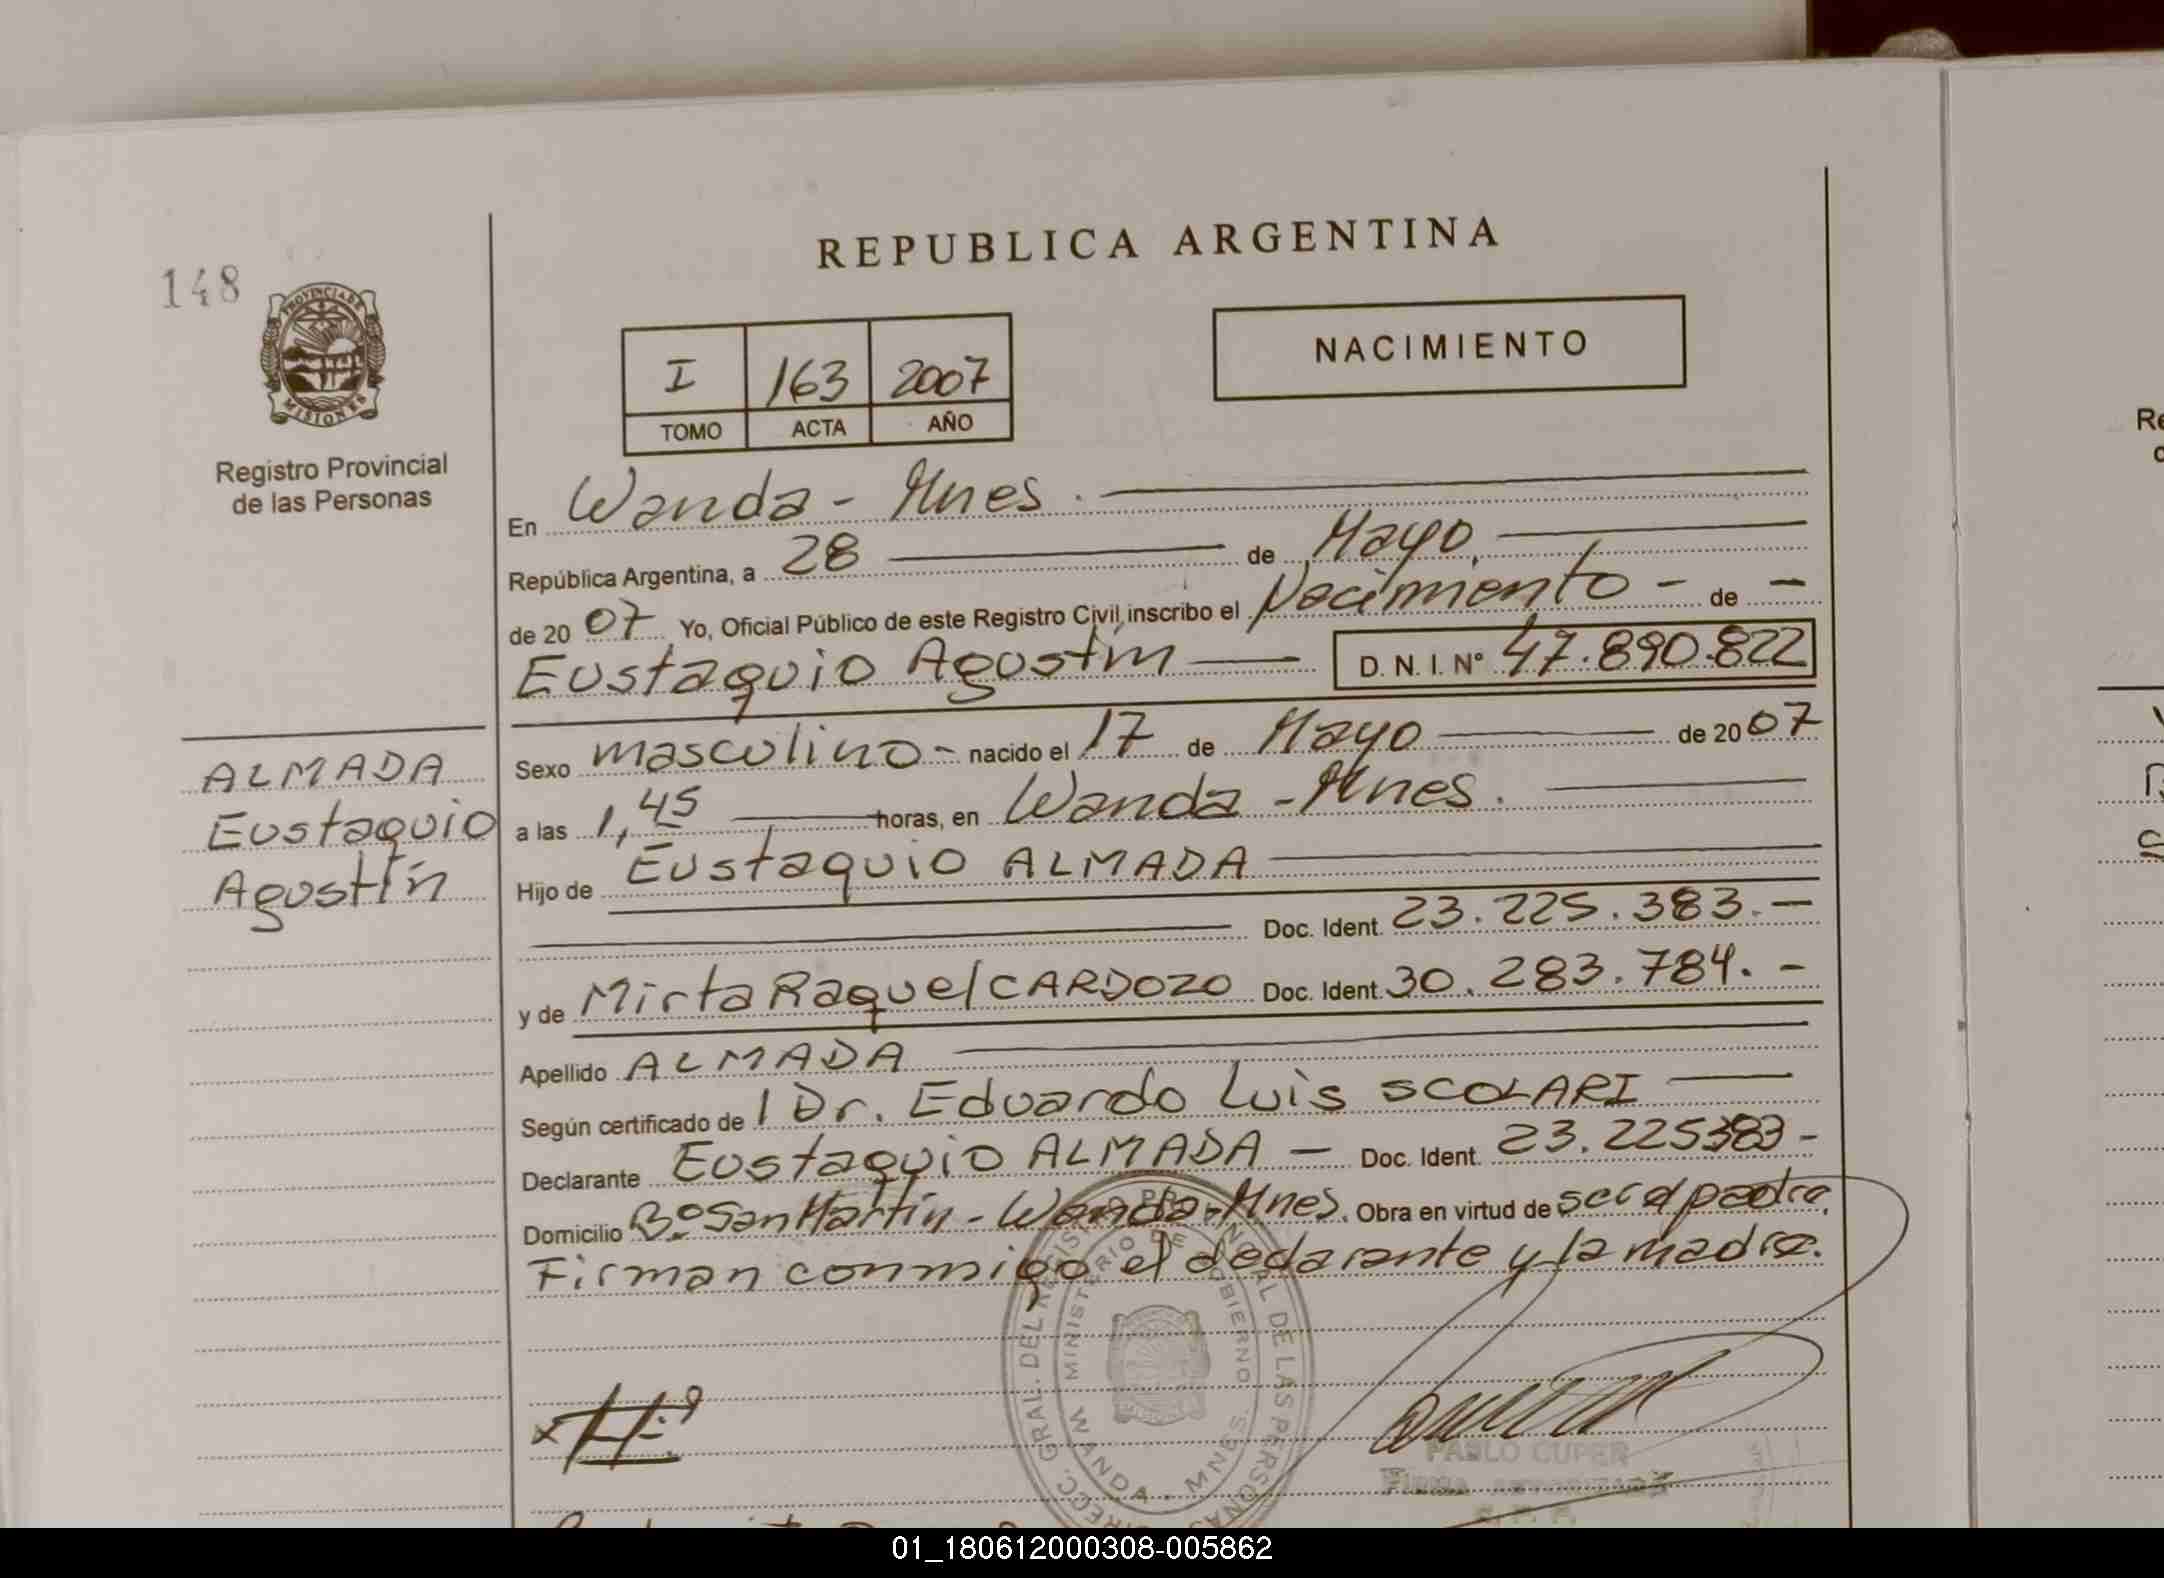 REPUBLICA ARGENTINA
148
PROVINCIA DE
MISIONES
Registro Provincial
de las Personas
NACIMIENTO
I 163 2007
TOMO ACTA AÑO
En Wanda - Mnes.
República Argentina, a 28 de Mayo,
de 20 07 Yo, Oficial Público de este Registro Civil, inscribo el Nacimiento - de -
Eustaquio Agustín D. N. I. N° 47.890.822
ALMADA
Eustaquio
Agustín
Sexo masculino - nacido el 17 de Mayo de 20 07
a las 1,45 horas, en Wanda - Mnes.
Hijo de Eustaquio ALMADA
Doc. Ident. 23.225.383.-
y de Mirta Raquel CARDOZO Doc. Ident. 30.283.784.-
Apellido ALMADA
Según certificado de l Dr. Eduardo Luis SCOLARI
Declarante Eustaquio ALMADA - Doc. Ident. 23.225383-
Domicilio B.º San Martín - Wanda - Mnes. Obra en virtud de ser el padre.
Firman conmigo el declarante y la madre.
DIRECC. GRAL. DEL REGISTRO PROVINCIAL DE LAS PERSONAS
MINISTERIO DE GOBIERNO
WANDA - MNES.
PABLO CUPER
01_180612000308-005862